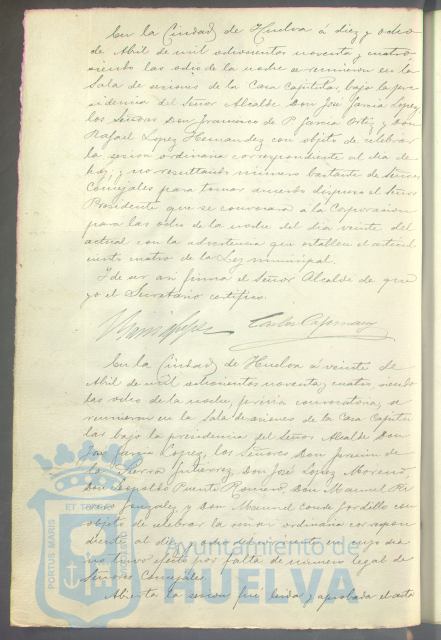 En la Ciudad de Huelva á diez y ocho
de Abril de mil ochocientos noventa y cuatro
siendo las ocho de la noche se reunieron en la
Sala de sesiones de la Casa Capitular, bajo la pre-
sidencia del Señor Alcalde Don José García Lopez,
los Señores Don Francisco de P. García Ortiz y Don
Rafael Lopez Hernandez con objeto de celebrar
la sesion ordinaria correspondiente al dia de
hoy; y no resultando número bastante de Señores
Concejales para tomar acuerdo dispuso el Señor
Presidente que se convocara á la Corporacion
para las ocho de la noche del dia veinte del
actual con la advertencia que establece el articulo
ciento cuatro de la Ley municipal.
Y de ser asi firma el Señor Alcalde de que
yo el Secretario certifico.
En la Ciudad de Huelva á veinte de
Abril de mil ochocientos noventa y cuatro, siendo
las ocho de la noche, previa convocatoria, se
reunieron en la Sala de sesiones de la Casa Capitu-
lar bajo la presidencia del Señor Alcalde Don
José García Lopez, los Señores Don
la Gutierrez, Don José Lopez Moreno,
Don Leopoldo Puente Romero, Don Manuel
Gonzalez y Don Manuel Conde Jordillo con
objeto de celebrar la sesion ordinaria correspon-
diente al diez y ocho del corriente en cuyo dia
no tuvo efecto por falta de número legal de
Señores Concejales.
Abierta la sesion fué leida y aprobada el acta
PORTUS MARIS ET
Ayuntamiento de
HUELVA